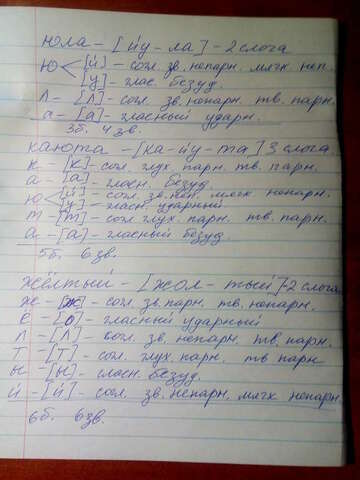 юла - [йу - ла] - 2 слога
ю < [й] - согл. зв. непарн. мягк. неп.
[у] - глас. безуд.
л - [л] - согл. зв. непарн. тв. парн.
а - [а] - гласный ударн.
3б. 4 зв.
каюта - [ка - йу - та] 3 слога
к - [к] - согл. глух. парн. тв. парн.
а - [а] - гласн. безуд
ю < [й] - согл. зв. неп. мягк непарн.
[у] - гласн. ударный
т - [т] - согл глух. парн. тв. парн.
а - [а] - гласный безуд.
5б. 6 зв.
жёлтый - [жол - тый] - 2 слога
ж - [ж] - согл. зв. парн. тв. непарн.
ё - [о] - гласный ударный
л - [л] - согл. зв, непарн. тв. парн.
т - [т] - согл. глух. парн. тв парн
ы - [ы] - гласн. безуд.
й - [й] - согл. зв. непарн. мягк. непарн.
6б. 6зв.